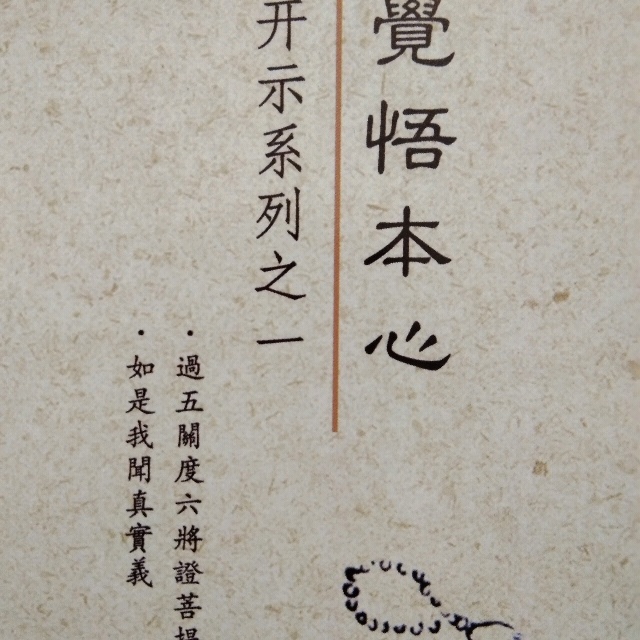 覺悟本心
开示系列之一
·過五關度六將證菩提
·如是我聞真實義